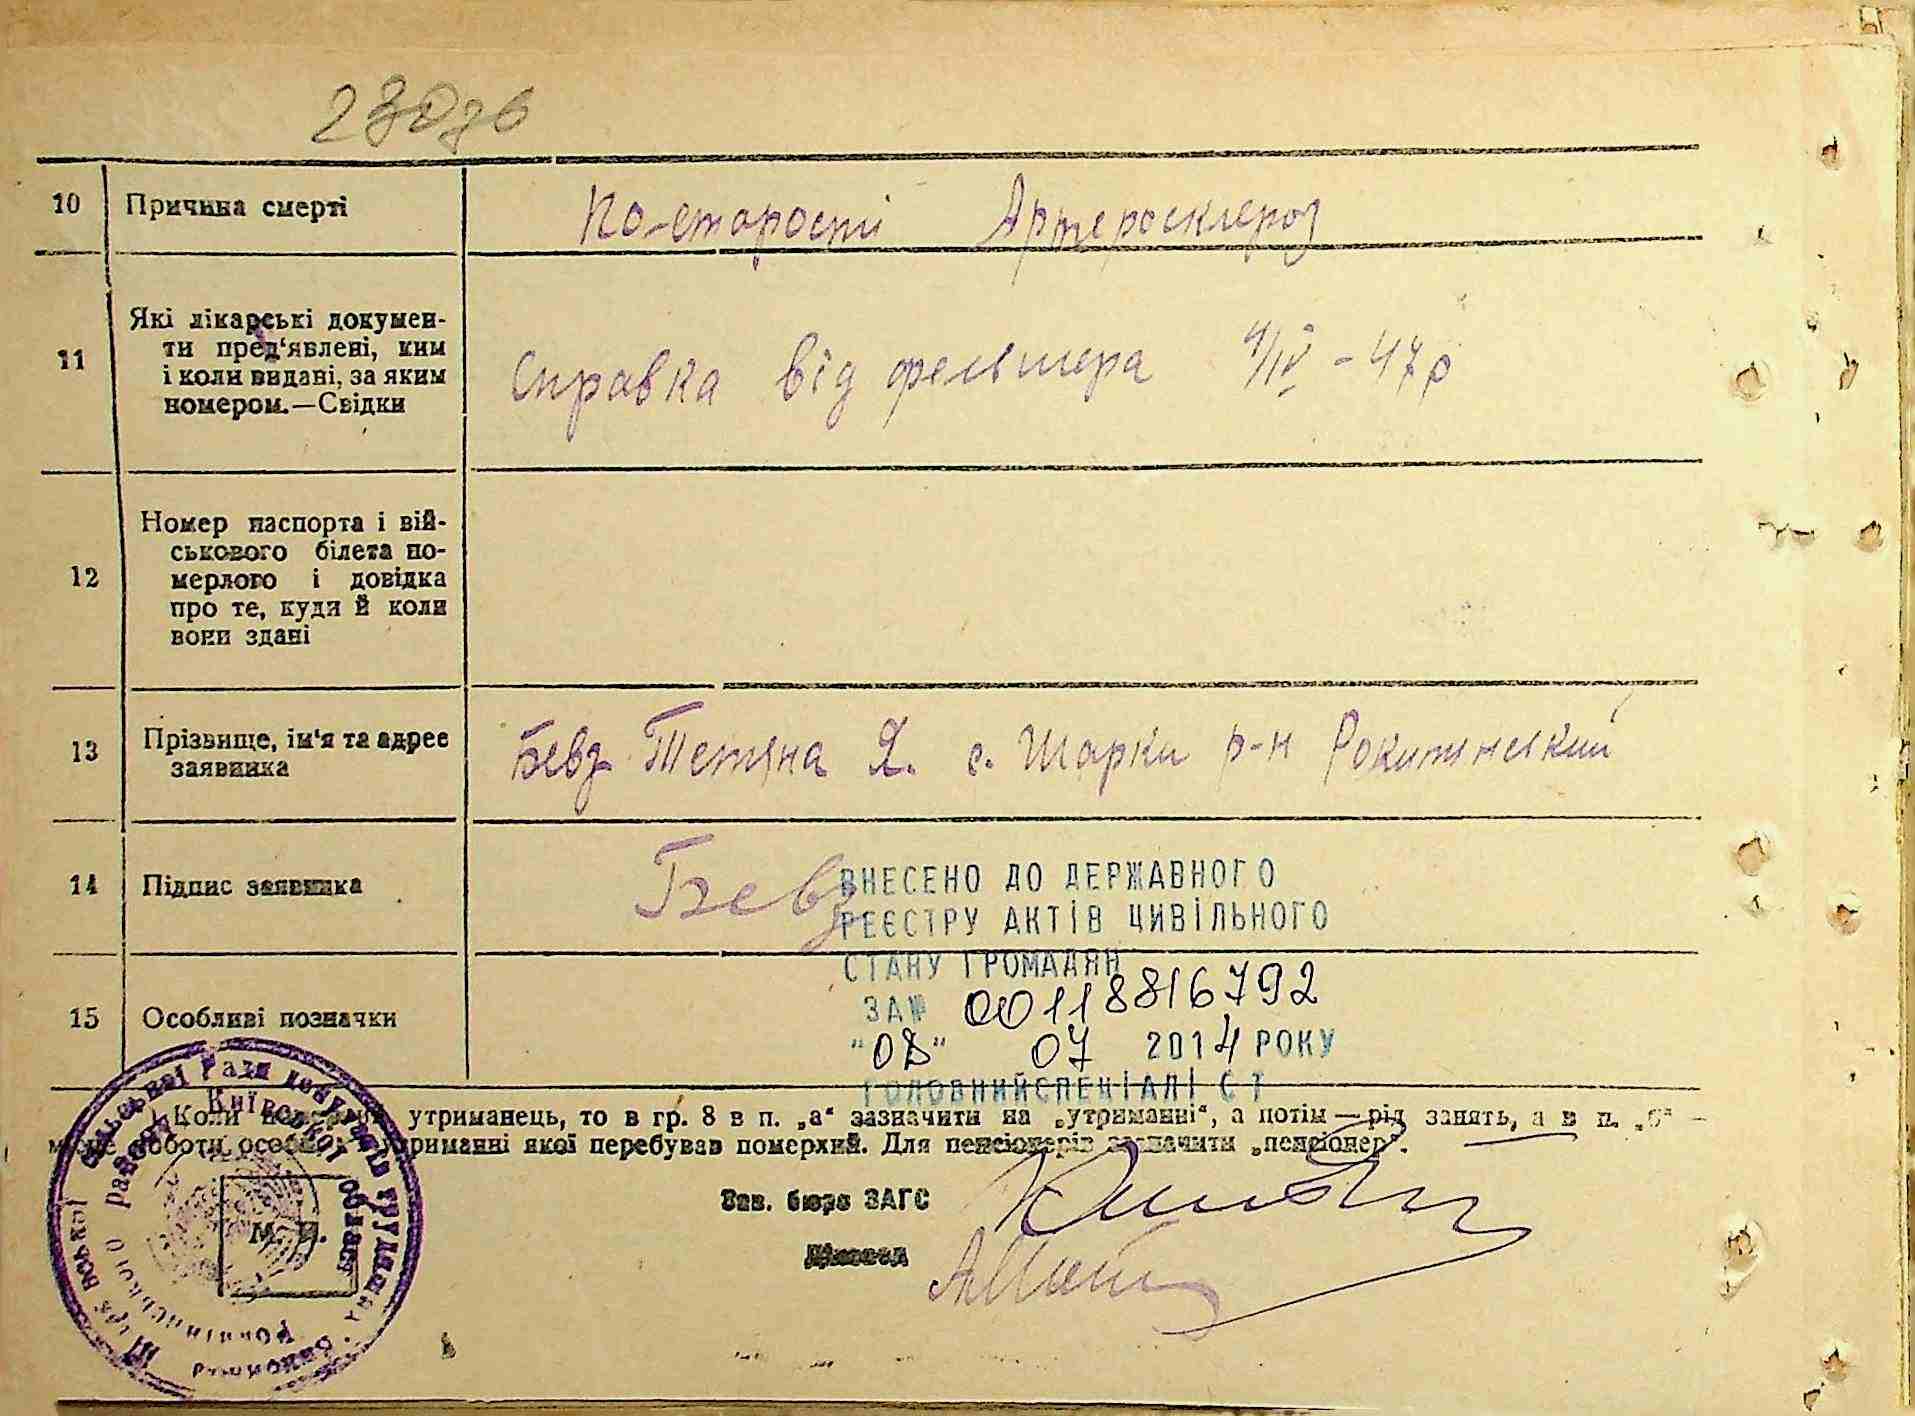 10 Причина смерті По-старості Артеросклероз
11 Які лікарські докумен-
ти пред'явлені, ким
і коли видані, за яким
номером.—Свідки
Справка від фельшера 4/IV - 47 р
12 Номер паспорта і вій-
ськового білета по-
мерлого і довідка
про те, куди й коли
вони здані
13 Прізвище, ім'я та адрес
заявника
Бевз Тетяна Я. с. Шарки р-н Рокитянський
14 Підпис заявника Бевз
ВНЕСЕНО ДО ДЕРЖАВНОГО
РЕЄСТРУ АКТІВ ЦИВІЛЬНОГО
СТАНУ ГРОМАДЯН
ЗА № 00118816792
"08" 07 2014 РОКУ
ГОЛОВНИЙ СПЕЦІАЛІСТ
15 Особливі позначки
Коли утриманець, то в гр. 8 в п. „а“ зазначити на „утриманні“, а потім — рід занять, а в п. „б“ —
роботи утриманні якої перебував померхий. Для пенсіонерів зазначити „пенсіонер“.
Зав. бюро ЗАГС
Діловод
М. П.
сільської Ради депутатів трудящих
району Київської
області